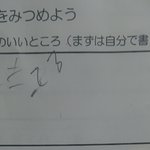 をみつめよう
のいいところ（まずは自分で書